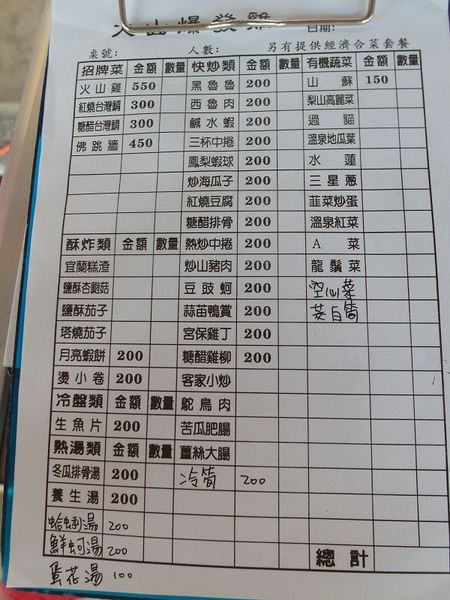 火山爆發雞 日期:
桌號: 人數: 另有提供經濟合菜套餐
招牌菜 金額 數量 快炒類 金額 數量 有機蔬菜 金額 數量
火山雞 550 黑魯魯 200 山蘇 150
紅燒台灣鯛 300 西魯肉 200 梨山高麗菜
糖醋台灣鯛 300 鹹水蝦 200 過貓
佛跳牆 450 三杯中捲 200 溫泉地瓜葉
鳳梨蝦球 200 水蓮
炒海瓜子 200 三星蔥
紅燒豆腐 200 韮菜炒蛋
糖醋排骨 200 溫泉紅菜
酥炸類 金額 數量 熱炒中捲 200 A菜
宜蘭糕渣 炒山豬肉 200 龍鬚菜
鹽酥杏鮑菇 豆豉蚵 200 空心菜
鹽酥茄子 蒜苗鴨賞 200 茭白筍
塔燒茄子 宮保雞丁 200
月亮蝦餅 200 糖醋雞柳 200
燙小卷 200 客家小炒
冷盤類 金額 數量 鴕鳥肉
生魚片 200 苦瓜肥腸
熱湯類 金額 數量 薑絲大腸
冬瓜排骨湯 200 冷筍 200
養生湯 200
蛤蜊湯 200
鮮蚵湯 200 總計
蛋花湯 100